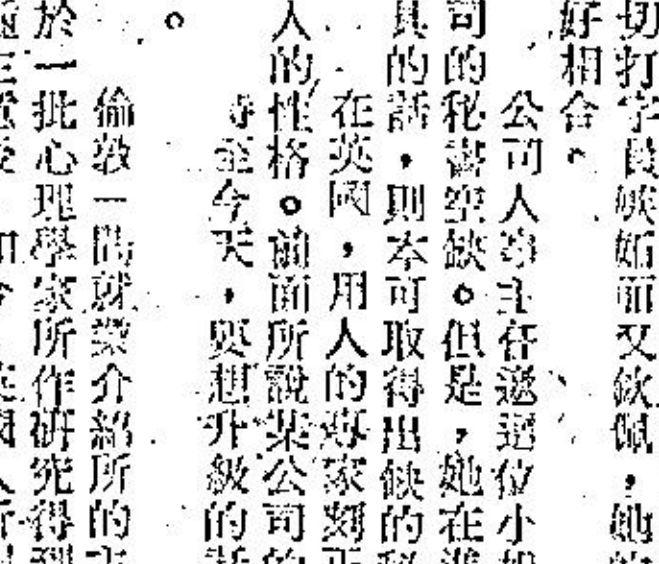 切打字員嫉妬而又欽佩，她
好相合。
公司人事主任邀這位小姐
司的秘書空缺。但是，她在
的話，則本可取得出缺的秘
在英國，用人的專家刻正
人的性格。前面所說某公司的
時至今天，要想升級的話
。
倫敦一間就業介紹所的主
於一批心理學家所作研究得到